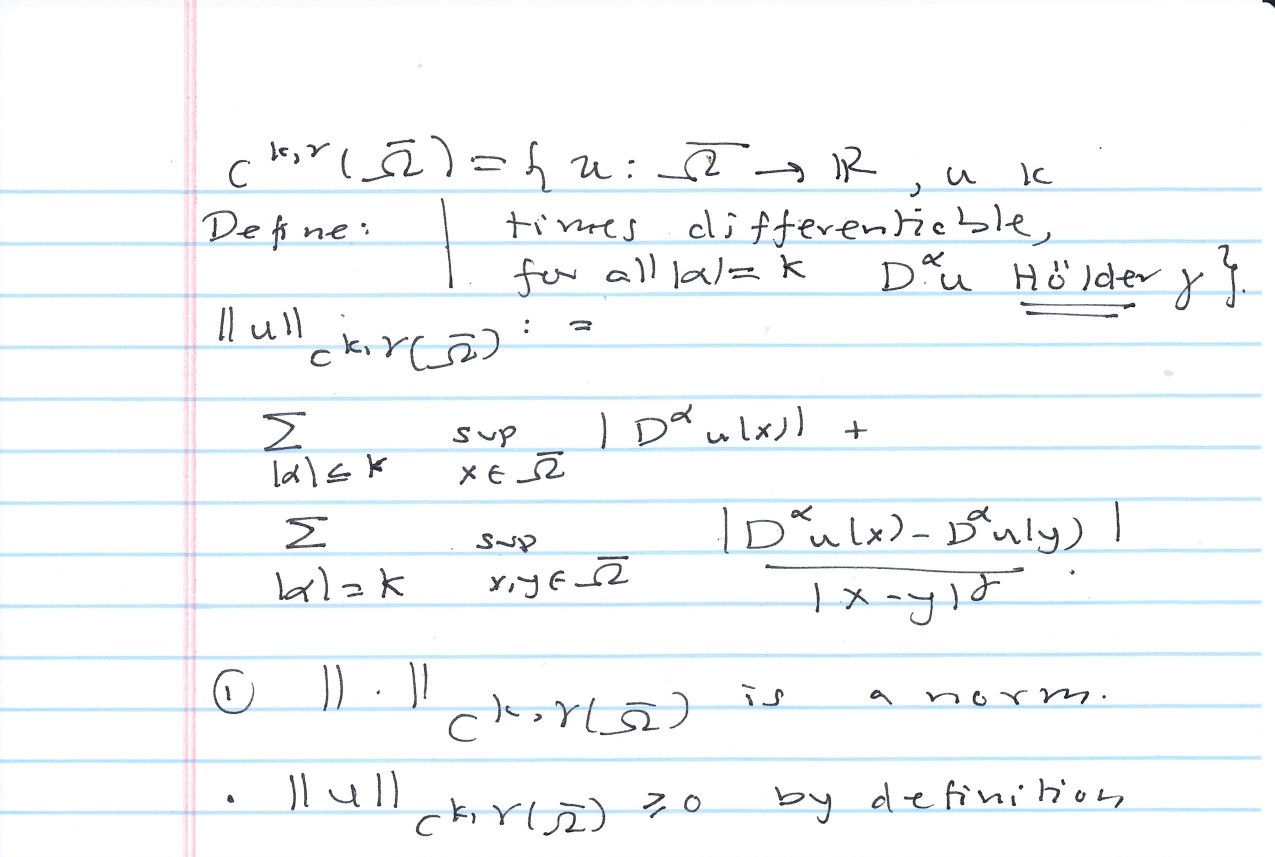 C^{k,γ}(Ω̄) = { u : Ω̄ → ℝ, u k
Define: | times differentiable,
for all |α| = k D^α u Hölder γ }.
||u||_{C^{k,γ}(Ω̄)} :=
Σ_{|α| ≤ k} sup_{x ∈ Ω̄} |D^α u(x)| +
Σ_{|α| = k} sup_{x,y ∈ Ω̄} |D^α u(x) - D^α u(y)| / |x - y|^γ .
① ||·||_{C^{k,γ}(Ω̄)} is a norm.
• ||u||_{C^{k,γ}(Ω̄)} ≥ 0 by definition